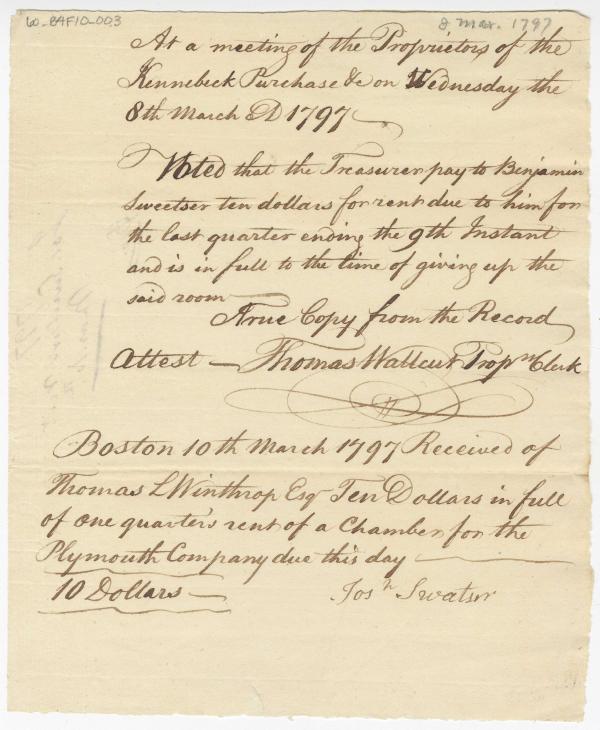 60-B4F10-003
8 Mar. 1797
At a meeting of the Proprietors of the
Kennebeck Purchase &c on Wednesday the
8th March AD 1797
Voted that the Treasurer pay to Benjamin
Sweetser ten dollars for rent due to him for
the last quarter ending the 9th Instant
and is in full to the time of giving up the
said room
A True Copy from the Record
Attest — Thomas Wallcut Propṛs Clerk
Boston 10th March 1797 Received of
Thomas L Winthrop Esqr Ten Dollars in full
of one quarters rent of a Chamber for the
Plymouth Company due this day
10 Dollars —
Josh Swatser